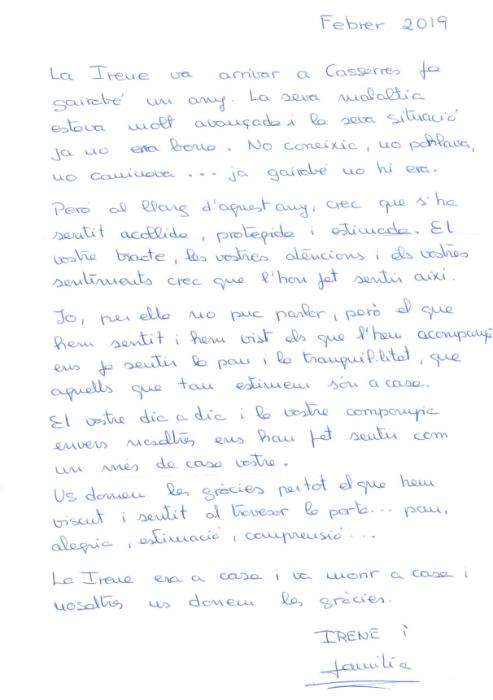 Febrer 2019
La Irene va arribar a Casserres fa
gairebé un any. La seva malaltia
estava molt avançada i la seva situació
ja no era bona. No coneixia, no parlava,
no caminava... ja gairebé no hi era.
Però al llarg d'aquest any, crec que s'ha
sentit acollida, protegida i estimada. El
vostre tracte, les vostres atencions i els vostres
sentiments crec que l'han fet sentir així.
Jo, per ella no puc parlar, però el que
hem sentit i hem vist els que l'hem acompanyat
ens fa sentir la pau i la tranquil·litat, que
aquells que tan estimem són a casa.
El vostre dia a dia i la vostra companyia
envers nosaltres ens han fet sentir com
un més de casa vostra.
Us donem les gràcies per tot el que hem
viscut i sentit al travessar la porta... pau,
alegria, estimació, comprensió...
La Irene era a casa i va morir a casa i
nosaltres us donem les gràcies.
IRENE i
família